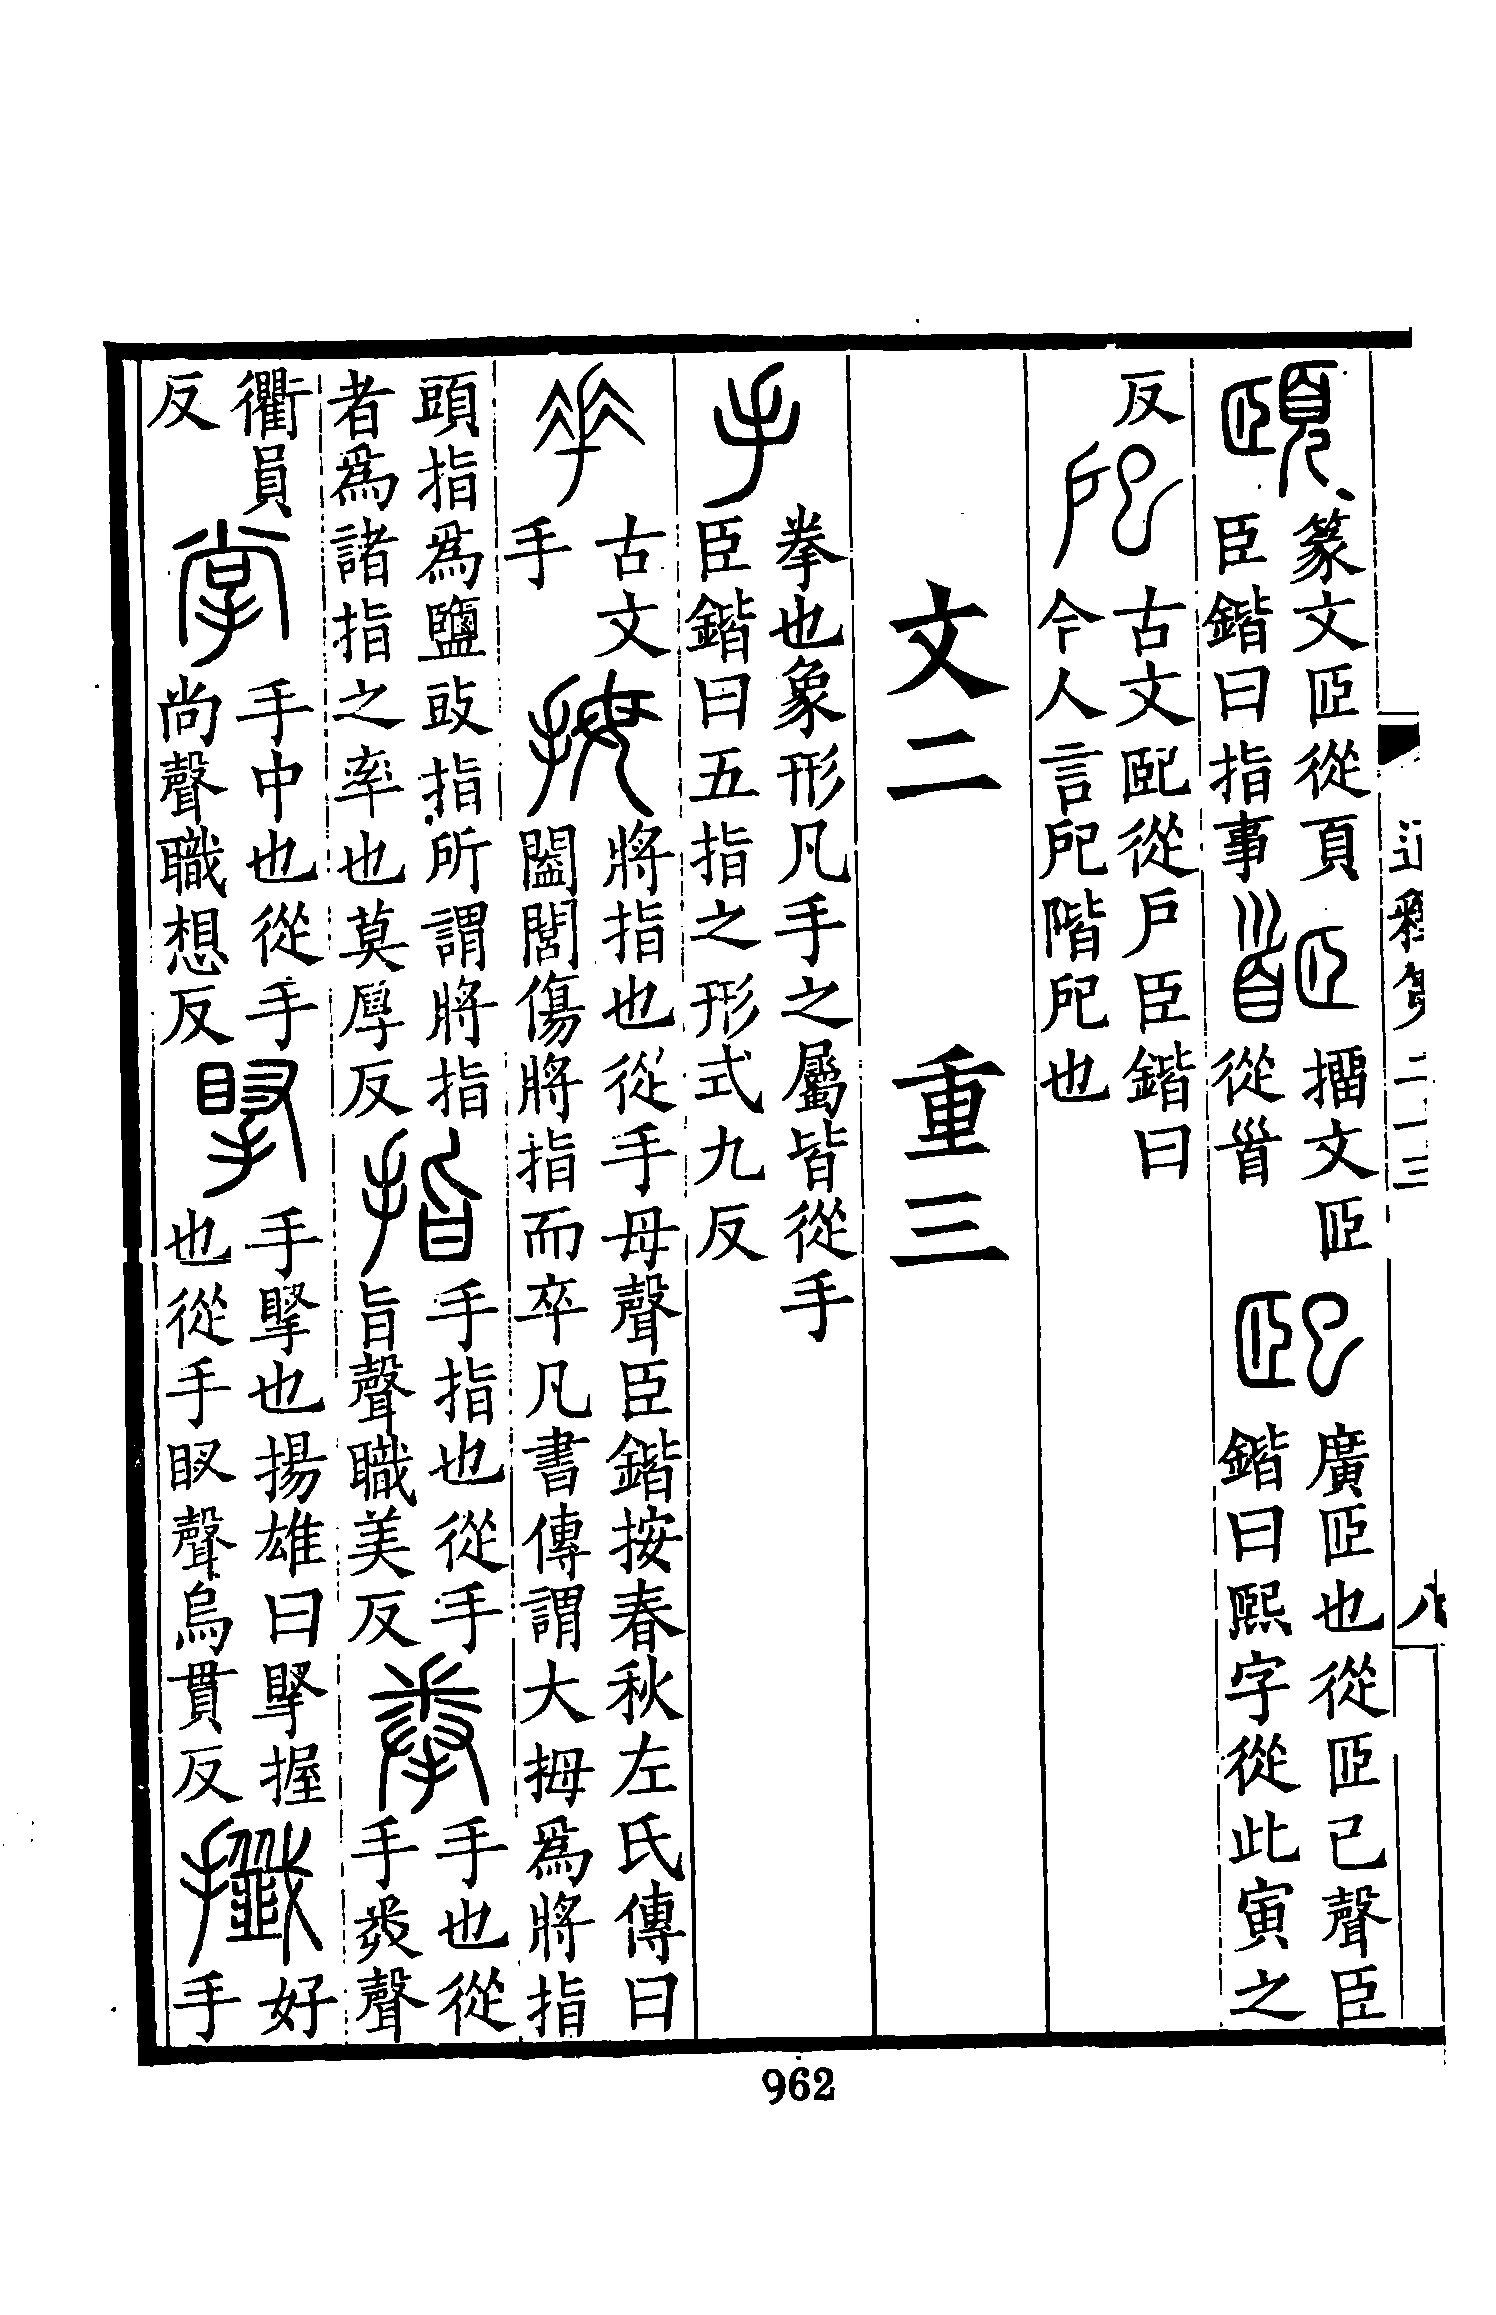 頤
篆文𦣞從頁
臣鍇曰指事
𦣞
擂文𦣞
從𩠐
巸
廣𦣞也從𦣞已聲臣
鍇曰熙字從此寅之
反
戺
古文巸從戶臣鍇曰
今人言戺階戺也
文二 重三
手
拳也象形凡手之屬皆從手
臣鍇曰五指之形式九反
古文
手
拇
將指也從手母聲臣鍇按春秋左氏傳曰
闔閭傷將指而卒凡書傳謂大拇爲將指
頭指爲鹽豉指所謂將指
者爲諸指之率也莫厚反
指
手指也從手
旨聲職美反
拳
手也從
手𢍏聲
衢員
反
掌
手中也從手
尚聲職想反
𢯲
手𢯲也揚雄曰𢯲握
也從手䀏聲烏貫反
攕
好
手
通釋第二十三
八
962